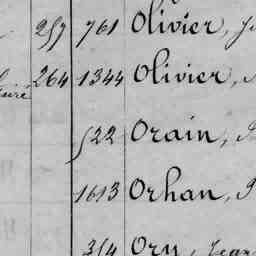 257 761 Olivier,
264 1344 Olivier,
522 Orain,
1613 Orhan,
314 Ory,